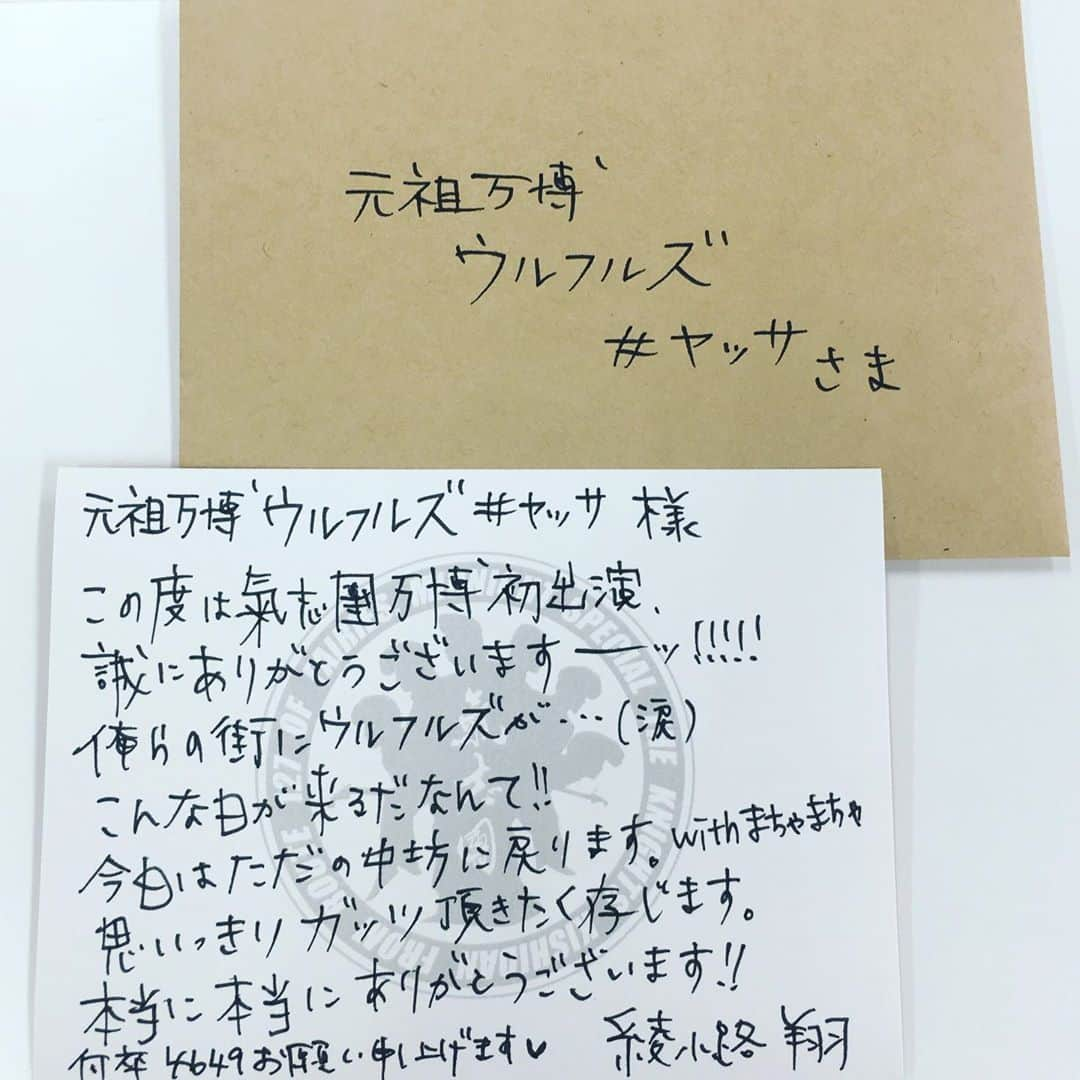 元祖万博
ウルフルズ
#ヤッサ さま
元祖万博ウルフルズ#ヤッサ 様
この度は氣志團万博初出演、
誠にありがとうございますーッ!!!!!
俺らの街にウルフルズが…(涙)
こんな日が来るだなんて!!
今日はただの中坊に戻ります。withまちゃまちゃ
思いっきりガッツ頂きたく存じます。
本当に本当にありがとうございます!!
何卒4649お願い申し上げます♥
綾小路 翔